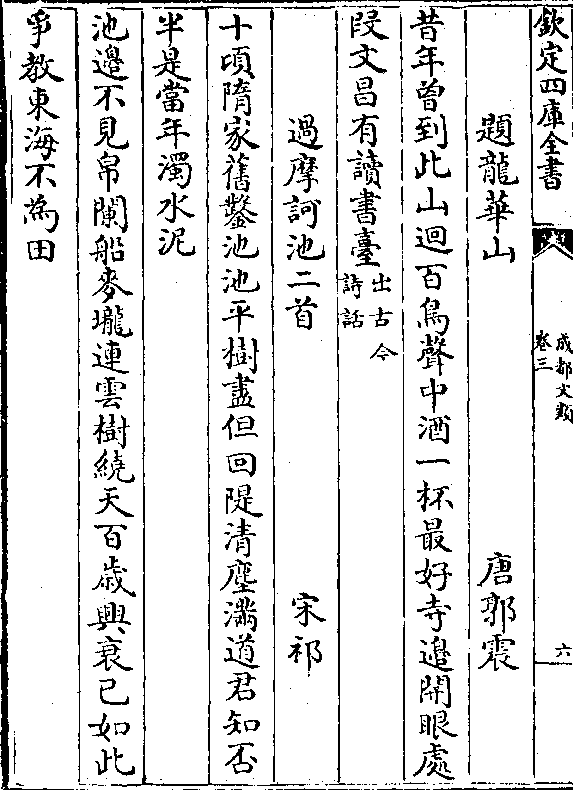 欽定四庫全書
成都文類
卷三
六
題龍華山　唐郭震
昔年曾到此山迴百鳥聲中酒一杯最好寺邉開眼處
段文昌有讀書臺出古今詩話
過摩訶池二首　宋祁
十頃隋家舊鑿池池平樹盡但回隄清塵滿道君知否
半是當年濁水泥
池邊不見帛闌船麥壠連雲樹繞天百歲興衰已如此
爭教東海不為田